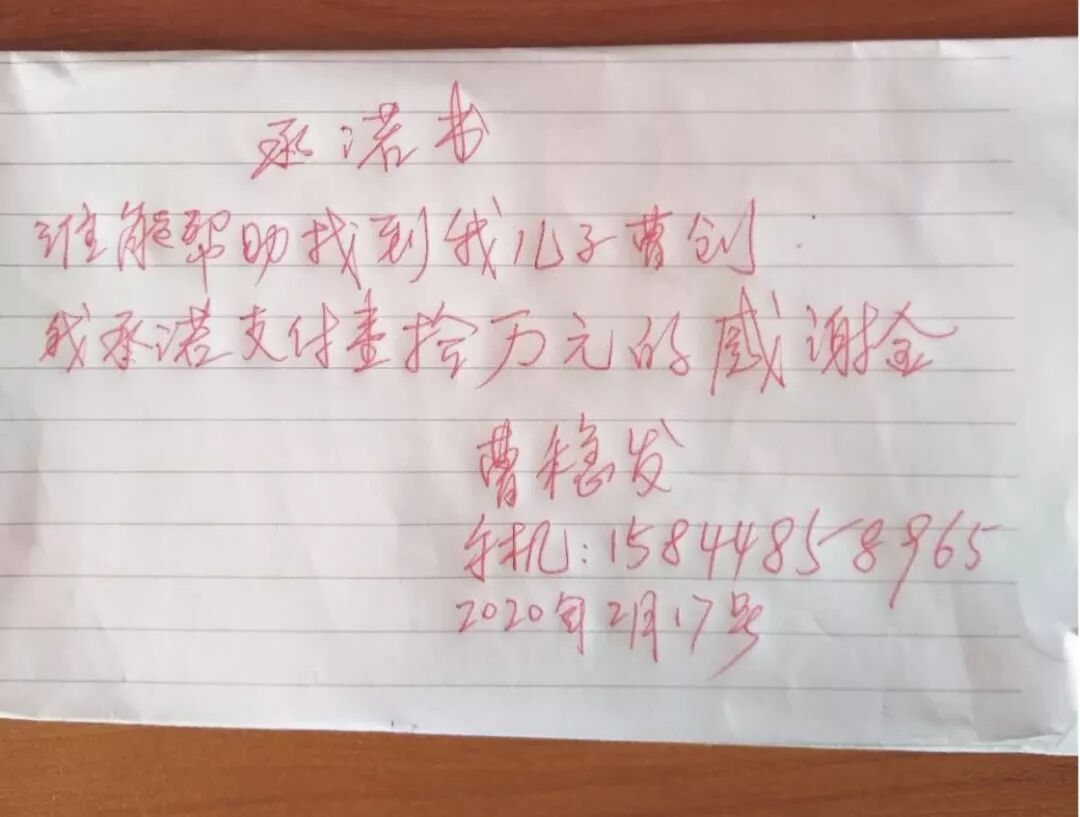 承诺书
谁能帮助找到我儿子曹创
我承诺支付壹拾万元的感谢金
曹稳发
手机:15844858965
2020年2月17号